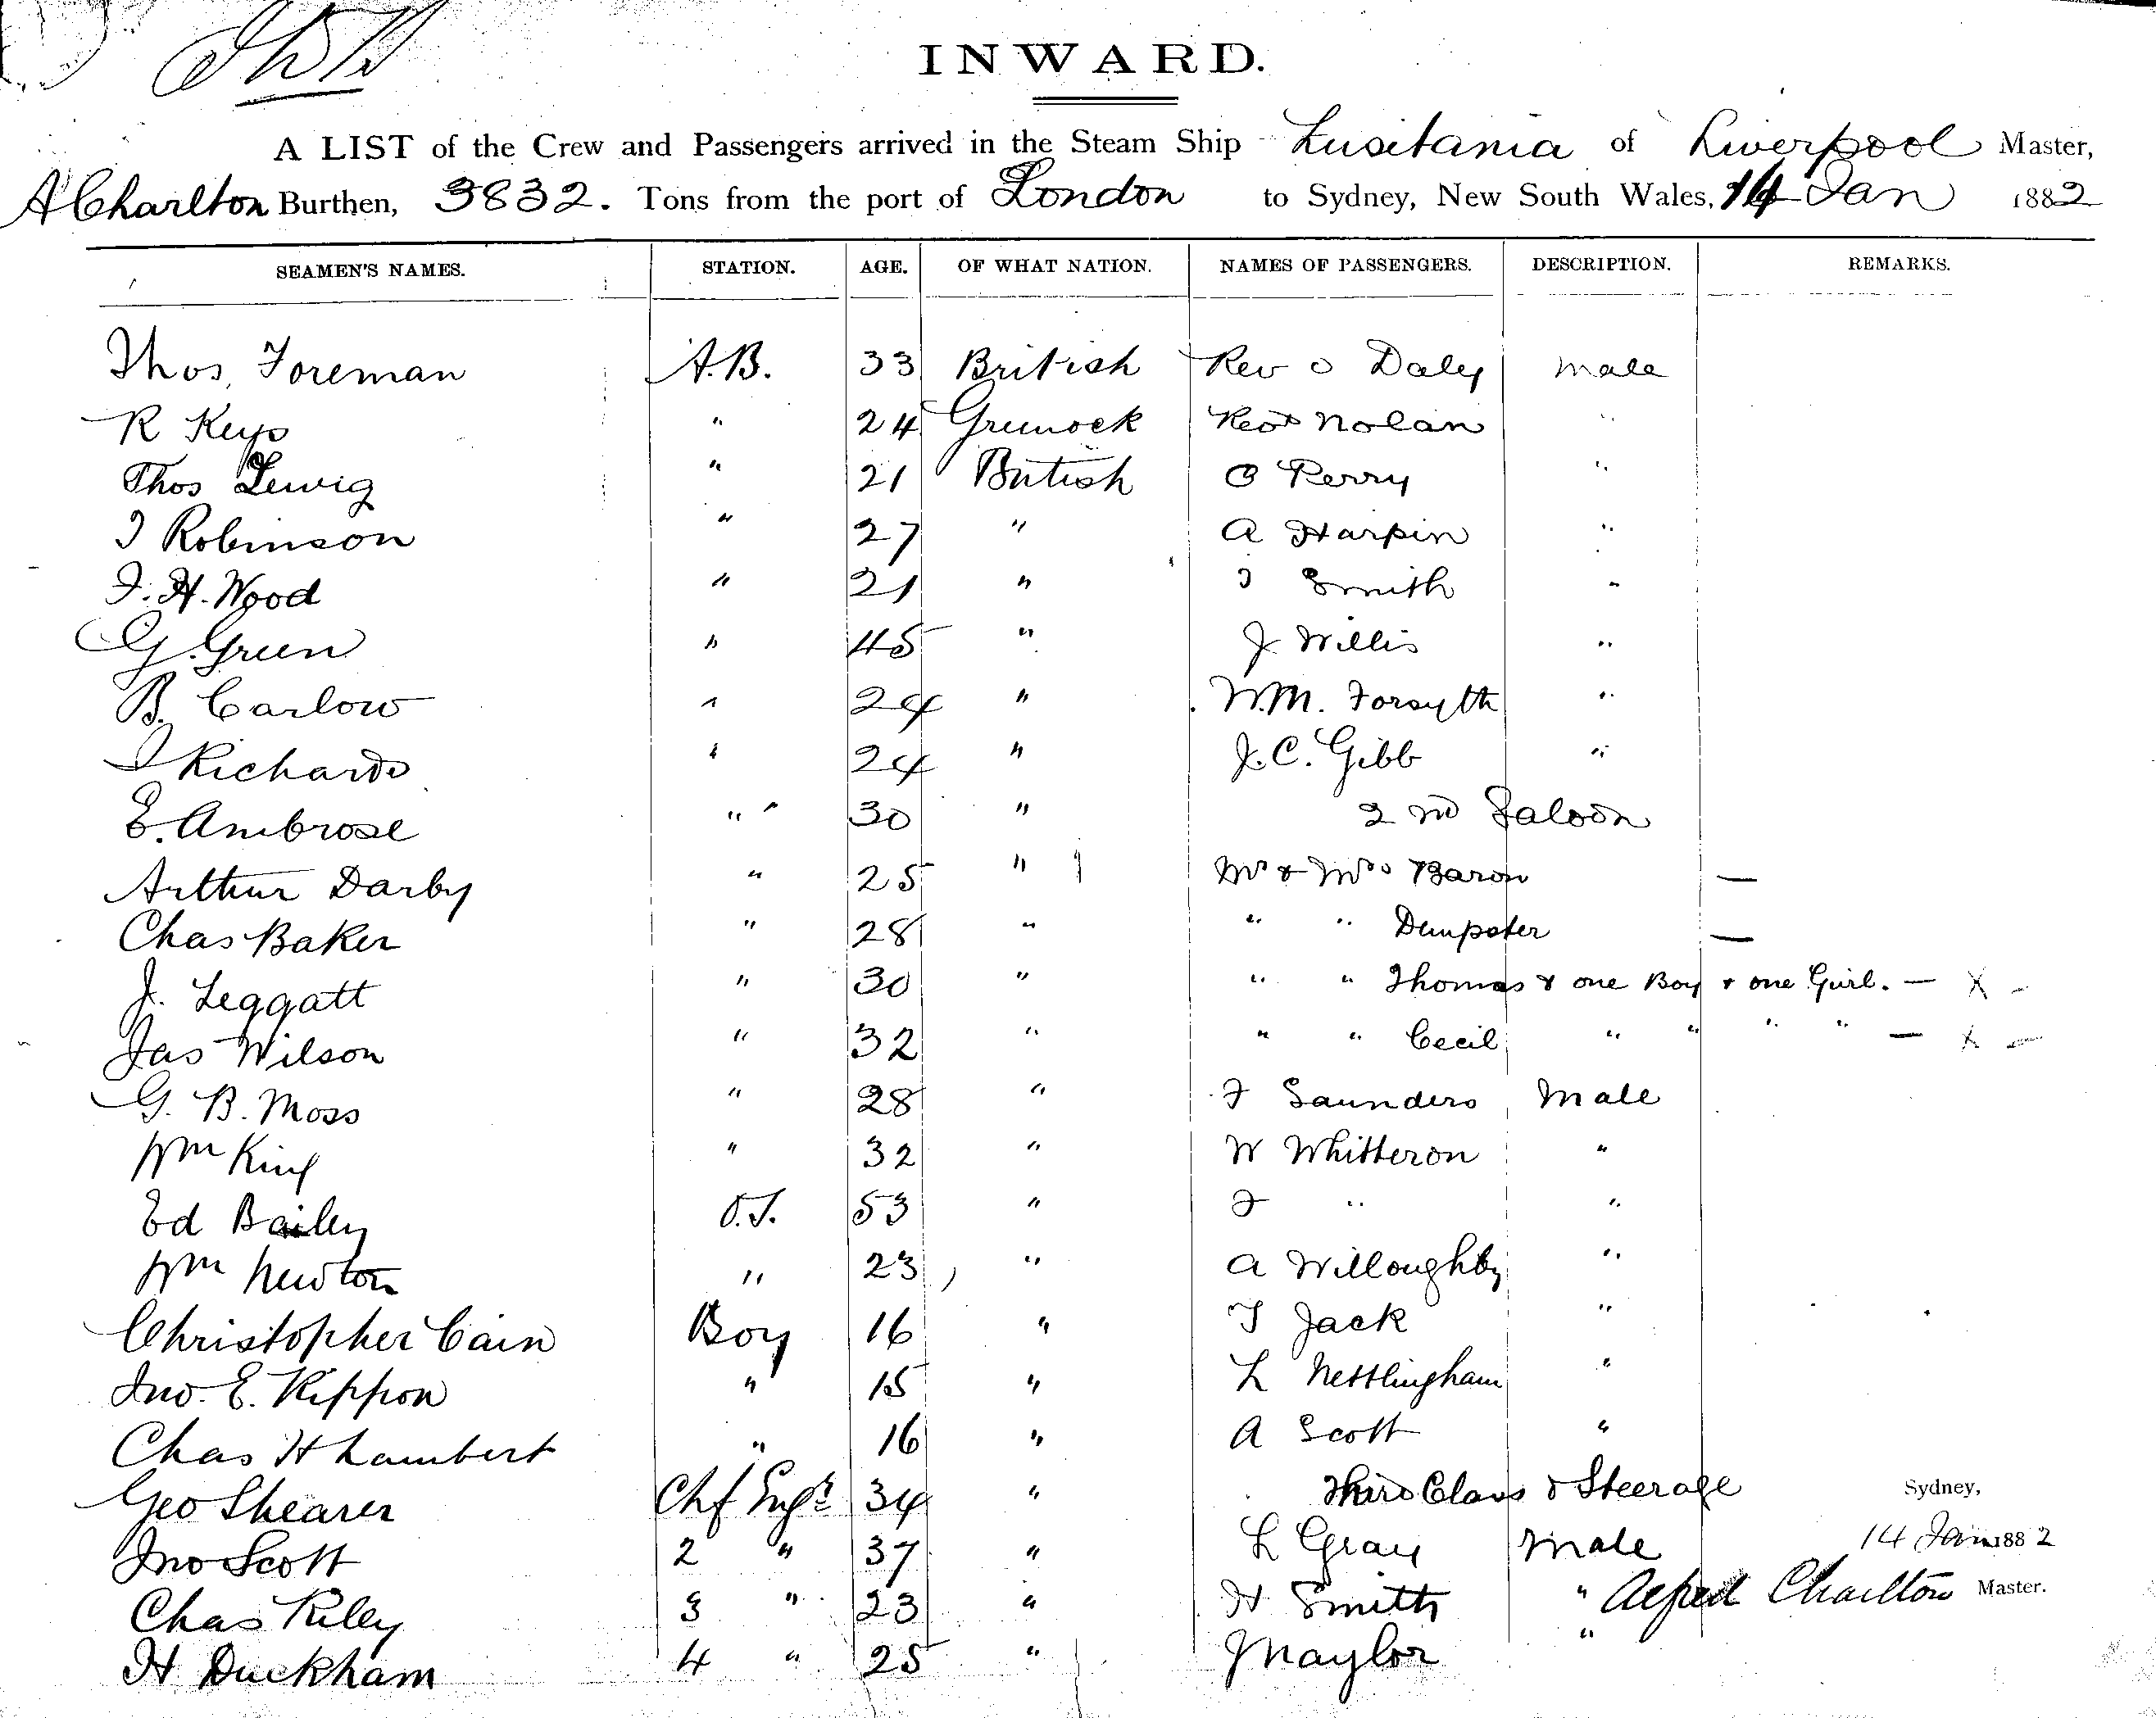 INWARD.
A LIST of the Crew and Passengers arrived in the Steam Ship Lusitania of Liverpool Master,
A Charlton Burthen, 3832. Tons from the port of London to Sydney, New South Wales, 14 Jan 1882
SEAMEN'S NAMES. STATION. AGE. OF WHAT NATION. NAMES OF PASSENGERS. DESCRIPTION. REMARKS.
Thos. Foreman A.B. 33 British Rev O Daly male
R Keys " 24 Greenock Nolan "
Thos Lewig " 21 British O Perry "
J Robinson " 27 " A Harpin "
J. H. Wood " 21 " J Smith "
G. Green " 45 " J Willis "
B. Carlow " 24 " W.M. Forsyth "
J Richards " 24 " J.C. Gibb "
E. Ambrose " " 30 " 2nd Saloon
Arthur Darby " 25 " Mr & Mrs Baron —
Chas Baker " 28 " " " Dempster —
J. Leggatt " 30 " " " Thomas & one Boy & one Girl. — X –
Jas Wilson " 32 " " " Cecil " " " " — X –
G. B. Moss " 28 " F Saunders Male
Wm King " 32 " W Whitteron "
Ed Bailey O.S. 53 " F " "
Wm Newton " 23 " A Willoughby "
Christopher Cain Boy 16 " T Jack "
Jno. E. Rippon " 15 " L Nettlingham "
Chas H Lambert " 16 " A Scott "
Geo Shearer Chf Engr 34 " Third Class & Steerage Sydney,
Jno Scott 2 " 37 " L Gray Male 14 Jan 1882
Chas Riley 3 " 23 " H Smith " Alfred Charlton Master.
H Duckham 4 " 25 " J Naylor "